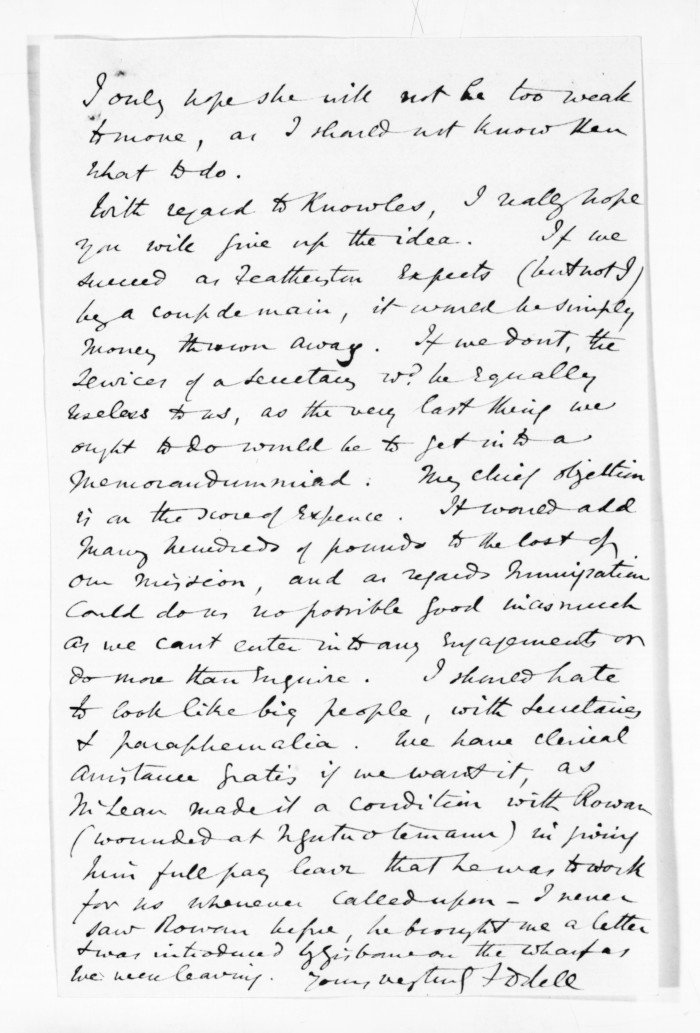 I only hope she will not be too weak
to move, as I should not know then
what to do.
With regard to Knowles, I really hope
you will give up the idea. If we
succeed as Featherston Expects (but not I)
by a coup de main, it would be simply
money thrown away. If we dont, the
services of a secretary wd. be Equally
useless to us, as the very last thing we
ought to do would be to get into a
Memorandummiad. My chief objection
is on the score of Expence. It would add
many hundreds of pounds to the cost of
our mission, and as regards Immigration
could do us no possible good inasmuch
as we cant enter into any Engagements or
do more than Enquire. I should hate
to look like big people, with Secretaries
& paraphernalia. We have clerical
assistance gratis if we want it, as
McLean made it a condition with Rowan
(wounded at Ngutuotemanu) in giving
him full pay leave that he was to work
for us whenever called upon - I never
saw Rowan before, he brought me a letter
& was introduced by Gisborne on the wharf as
we were leaving. Yours F D Bell